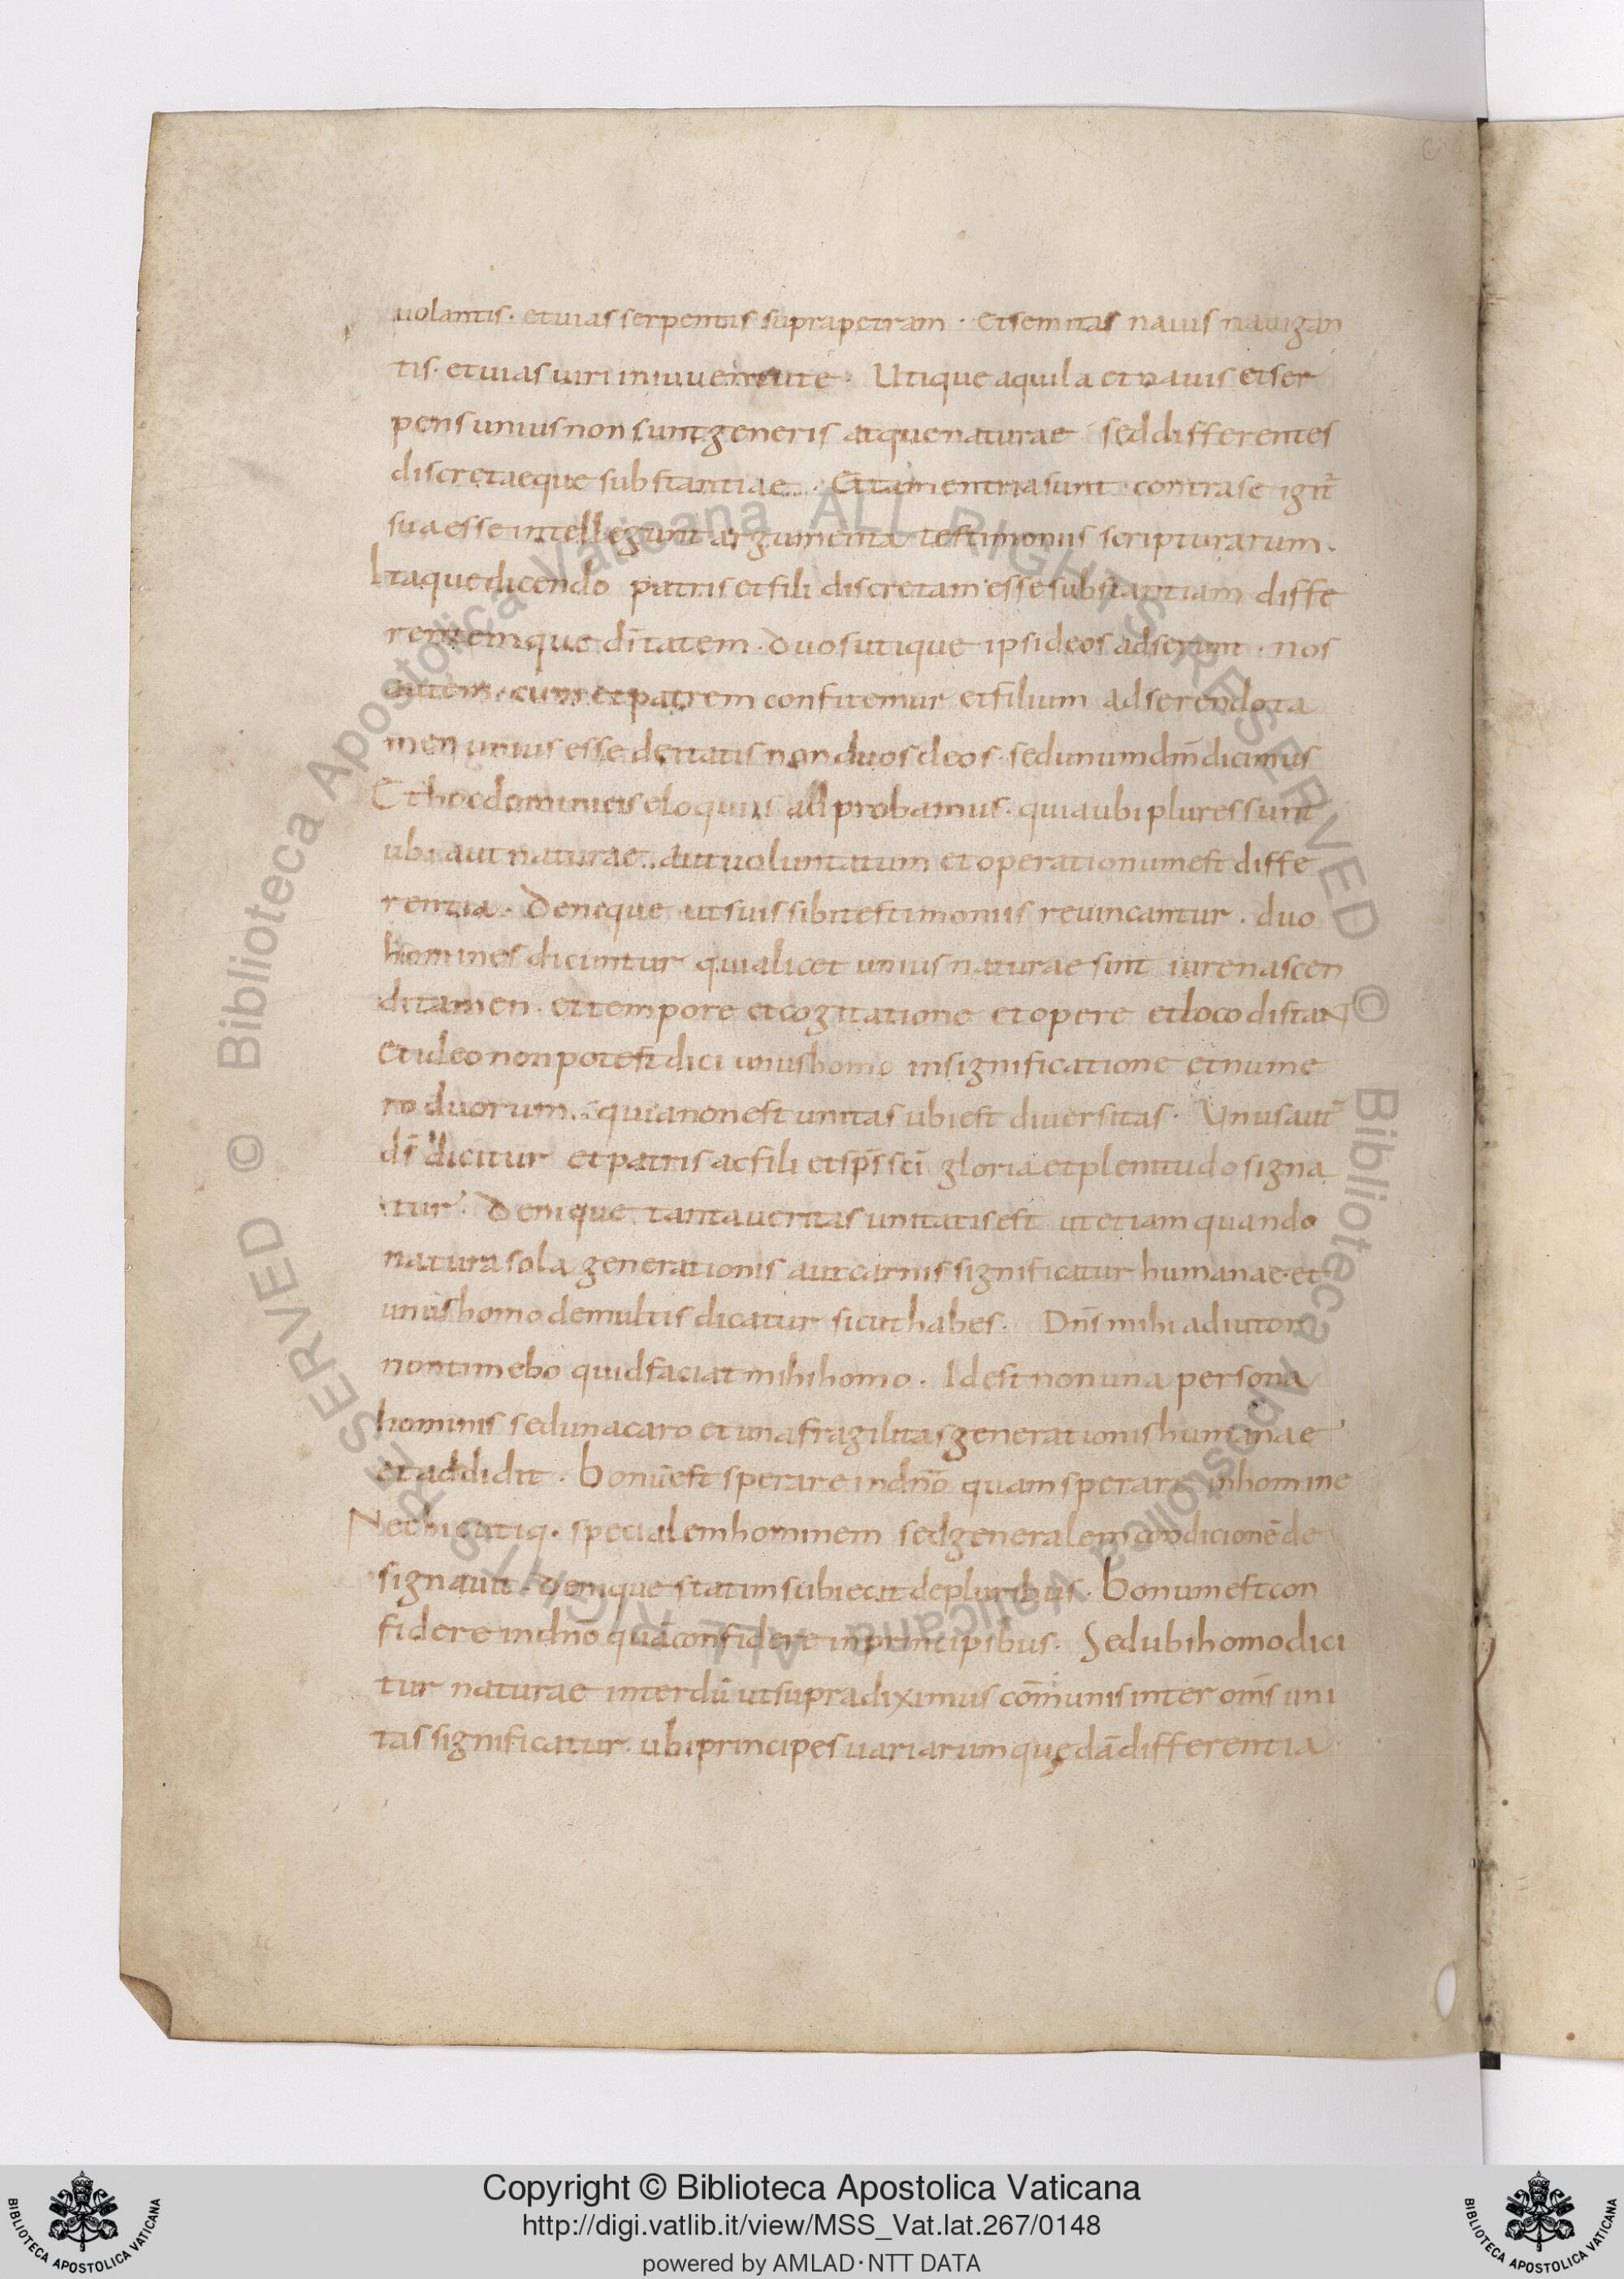 uolantis · et uias serpentis supra petram · et semitas nauis nauigan
tis · et uias uiri in iuuentute · Utique aquila et nauis et ser
pens unius non sunt generis atque naturae sed differentes
discretaeque substantiae · Et tamen tria sunt · contra se igit̄
sua esse intellegunt argumenta testimoniis scripturarum ·
Itaque dicendo patris et fili discretam esse substantiam diffe
rentemque diītatem · duos utique ipsi deos adserunt · nos
autem · cum et patrem confitemur et filium adserendo ta
men unius esse deitatis non duos deos · sed unum dm̄ dicimus
Et hoc dominicis eloquiis adprobamus · quia ubi plures sunt
ubi aut naturae · aut uoluntatum et operationum est diffe
rentia · deneque ut suis sibi testimoniis reuincantur · duo
homines dicuntur quia licet unius naturae sint iure nascen
di tamen · et tempore et cogitatione et opere et loco distant
et ideo non potest dici unus homo in significatione et nume
ro duorum · quia non est unitas ubi est diuersitas · Unus aut̄
ds̄ dicitur et patris ac fili et sps̄ sci̅ gloria et plenitudo signa
tur · denique tanta ueritas unitatis est ut etiam quando
natura sola generationis aut carnis significatur humanae · et
unus homo de multis dicatur sicut habes · Dn̄s mihi adiutor
non timebo quid faciat mihi homo · Id est non una persona
hominis sed una caro et una fragilitas generationis humanae
et addidit · bonū est sperare in dn̄o quam sperare in homine
Nec hic utiq · specialem hominem sed generalem condicionē de
signauit · denique statim subiecit de pluribus · bonum est con
fidere in dn̄o quā confidere in principibus · Sed ubi homo dici
tur naturae interdū ut supra diximus com̄unis inter om̄s uni
tas significatur · ubi principes uariarum quędā differentia ·
Copyright © Biblioteca Apostolica Vaticana
http://digi.vatlib.it/view/MSS_Vat.lat.267/0148
powered by AMLAD·NTT DATA
BIBLIOTECA APOSTOLICA VATICANA
BIBLIOTECA APOSTOLICA VATICANA
© Biblioteca Apostolica Vaticana ALL RIGHTS RESERVED © Biblioteca Apostolica Vaticana ALL RIGHTS RESERVED